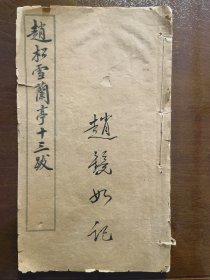 趙松雪蘭亭十三跋
趙競如記